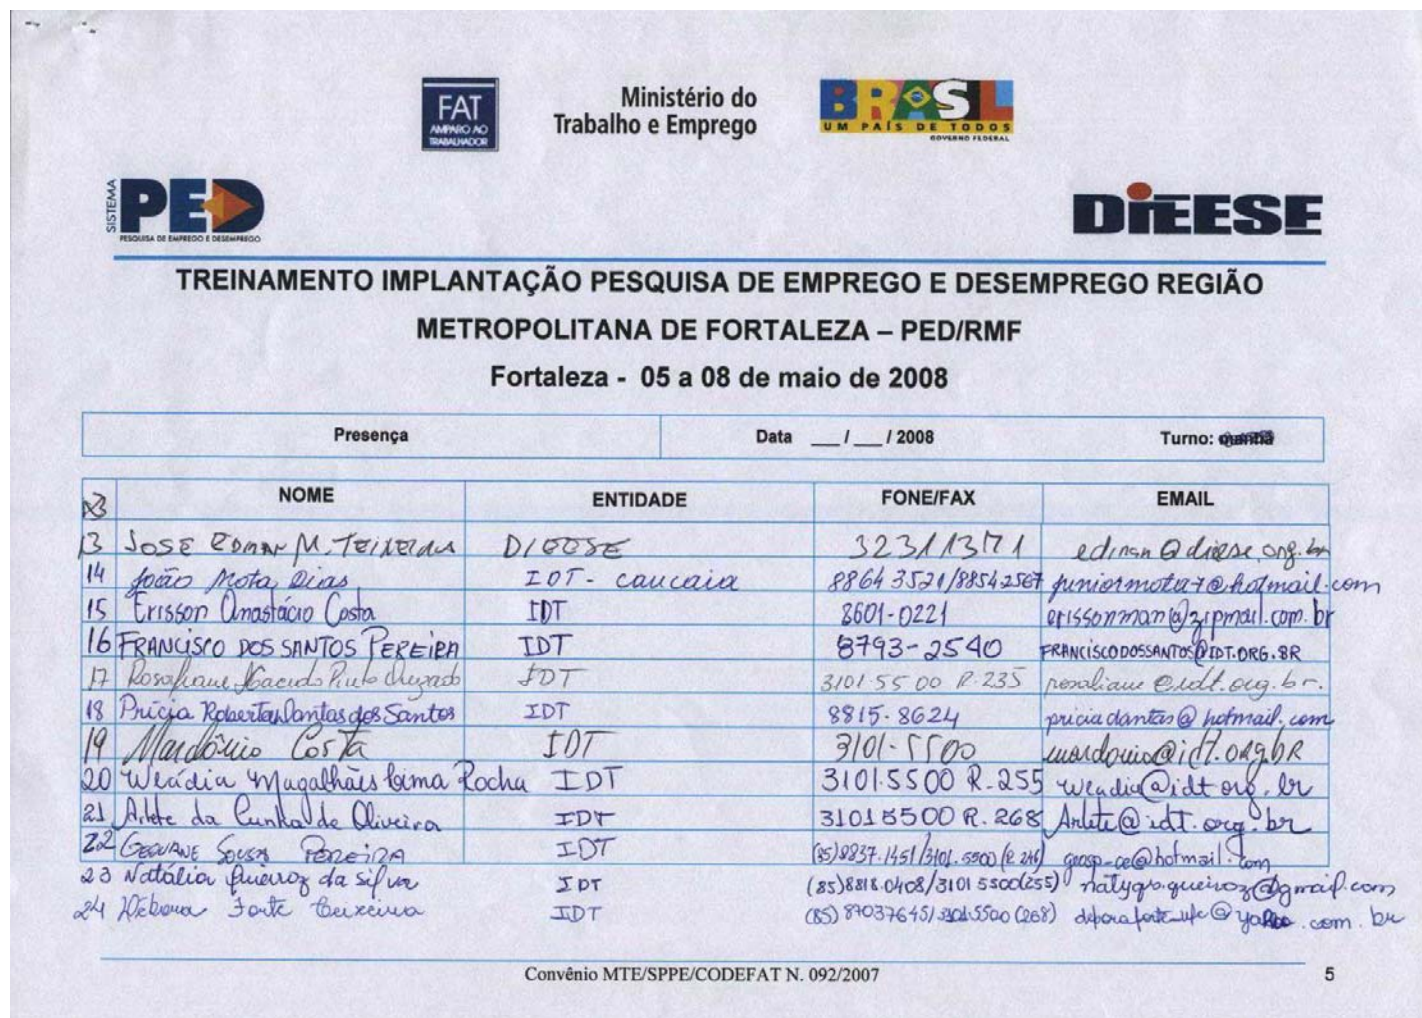 FAT
AMPARO AO
TRABALHADOR
Ministério do
Trabalho e Emprego
BRASIL
UM PAÍS DE TODOS
GOVERNO FEDERAL
SISTEMA
PED
PESQUISA DE EMPREGO E DESEMPREGO
DIEESE
TREINAMENTO IMPLANTAÇÃO PESQUISA DE EMPREGO E DESEMPREGO REGIÃO
METROPOLITANA DE FORTALEZA – PED/RMF
Fortaleza - 05 a 08 de maio de 2008
Presença Data ___/___/ 2008 Turno: manhã
NOME ENTIDADE FONE/FAX EMAIL
13 JOSE EDINAN M. TEIXEIRA DIEESE 32311371 edinan@dieese.org.br
14 João Mota Dias IDT - caucaia 8864 3521/88542567 juniormota7@hotmail.com
15 Erisson Anastácio Costa IDT 8601-0221 erissonman@zipmail.com.br
16 FRANCISCO DOS SANTOS PEREIRA IDT 8793-2540 FRANCISCODOSSANTOS@IDT.ORG.BR
17 Rosaliane Macedo Pinto IDT 3101.55 00 R.235 rosaliane@idt.org.br.
18 Prícia Roberta Dantas dos Santos IDT 8815-8624 priciadantas@hotmail.com
19 Mardônio Costa IDT 3101-5500 mardonio@idt.org.bR
20 Wládia Magalhães Lima Rocha IDT 3101.5500 R.255 wladia@idt.org.br
21 Arlete da Cunha de Oliveira IDT 31015500 R. 268 Arlete@idt.org.br
22 GEOVANE SOUSA PEREIRA IDT (85)8837.1451/3101.5500 (R 246) geosp_ce@hotmail.com
23 Natália Queiroz da Silva IDT (85)8818.0408/3101 5500(255) natygs.queiroz@gmail.com
24 Débora Forte Teixeira IDT (85) 87037645/3101.5500 (268) deboraforte_ufc@yahoo.com.br
Convênio MTE/SPPE/CODEFAT N. 092/2007 5